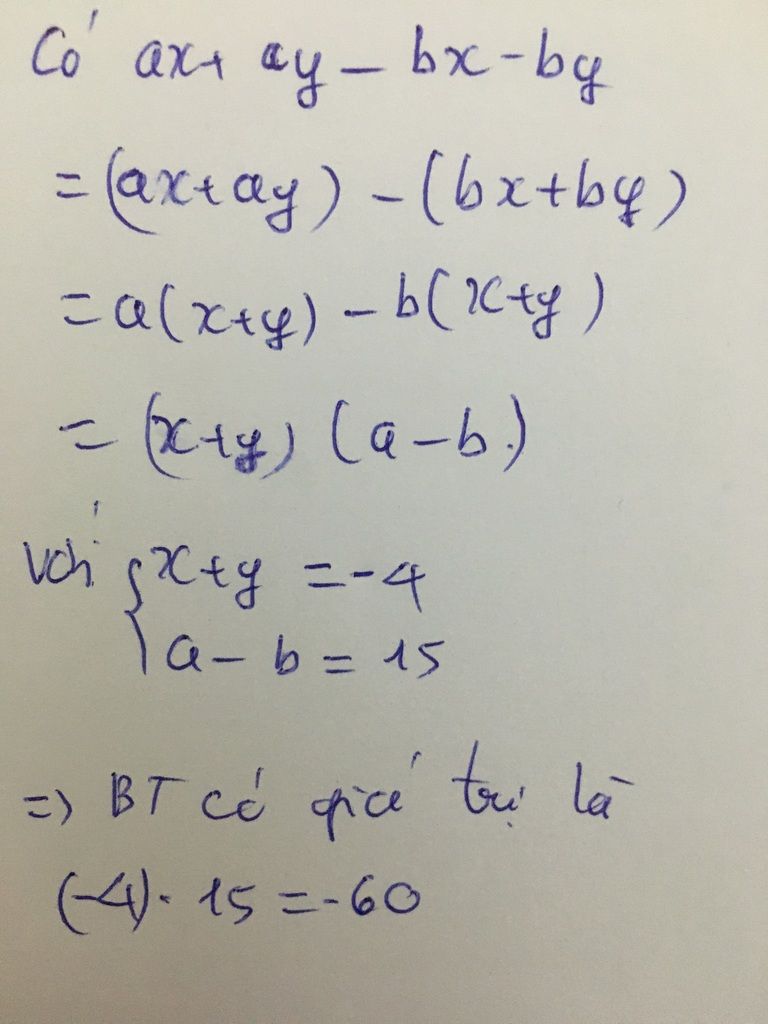 Có ax + ay - bx - by
= (ax + ay) - (bx + by)
= a(x+y) - b(x+y)
= (x+y) (a - b)
Với { x+y = -4
a - b = 15
=> BT có giá trị là
(-4) . 15 = -60